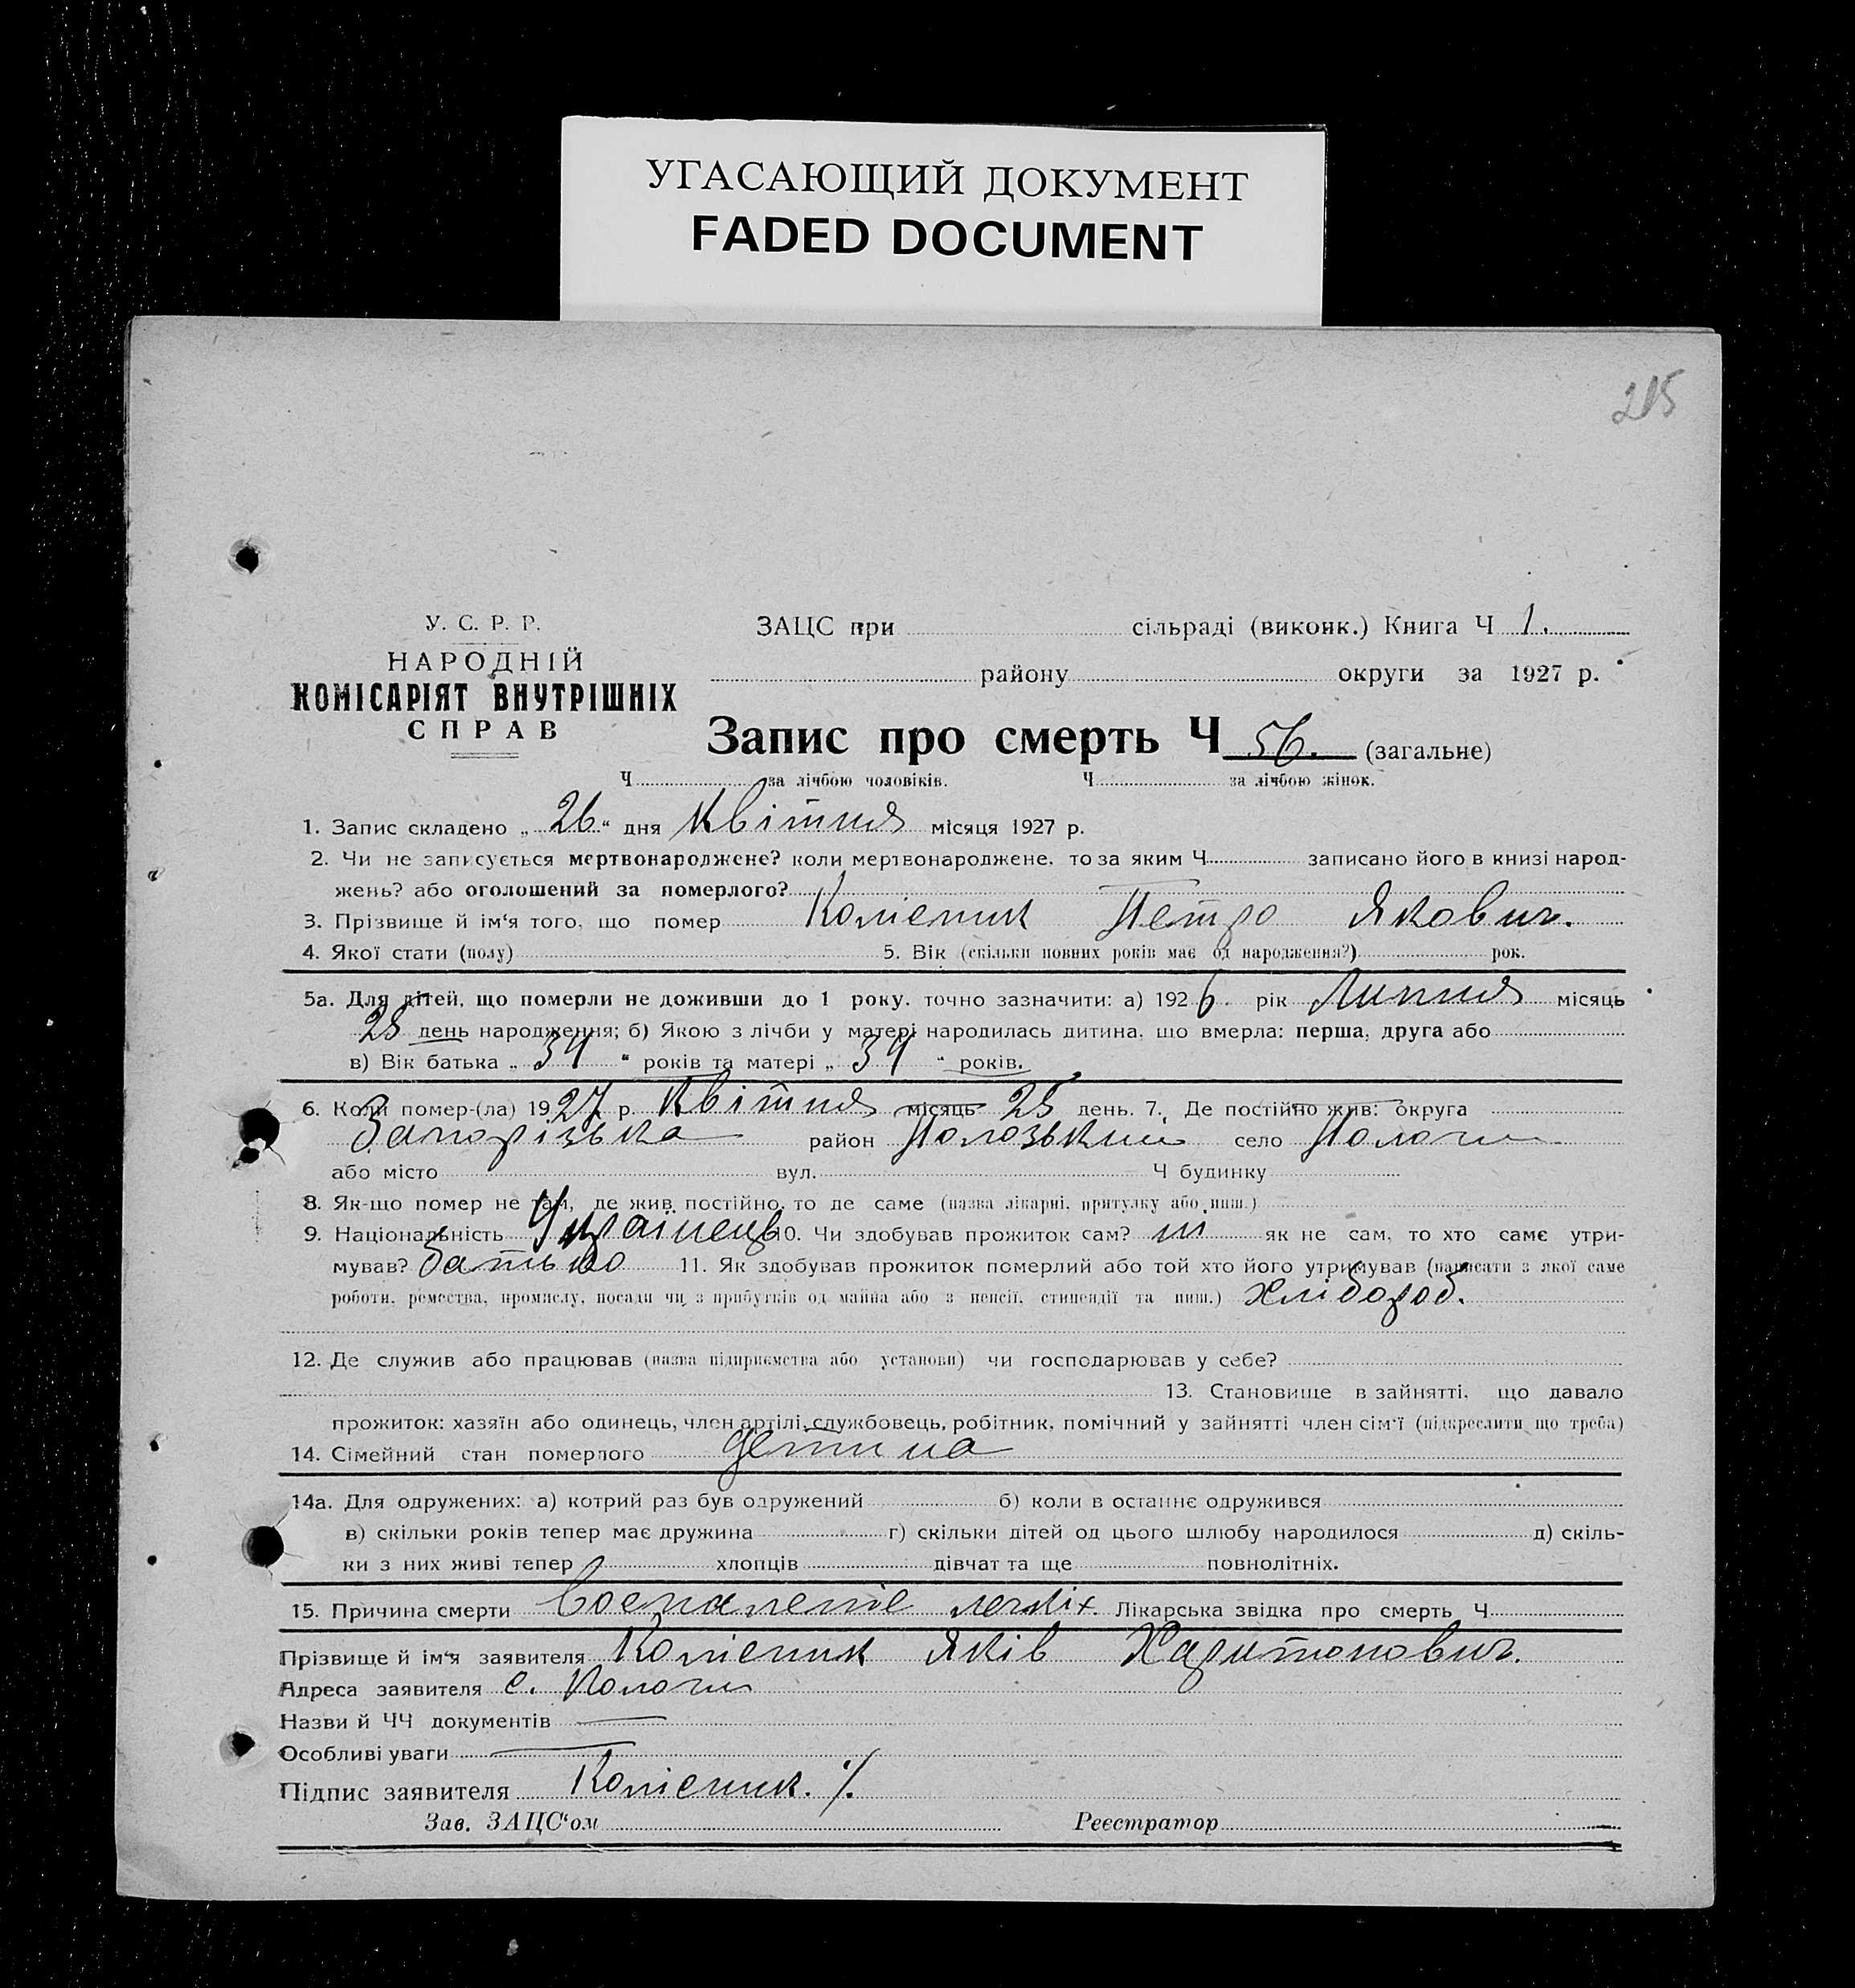 УГАСАЮЩИЙ ДОКУМЕНТ
FADED DOCUMENT
215
У. С. Р. Р.
НАРОДНІЙ
КОМІСАРІЯТ ВНУТРІШНІХ
СПРАВ
ЗАЦС при сільраді (виконк.) Книга Ч 1.
району округи за 1927 р.
Запис про смерть Ч 56. (загальне)
Ч за лічбою чоловіків. Ч за лічбою жінок.
1. Запис складено „ 26 “ дня Квітня місяця 1927 р.
2. Чи не записується мертвонароджене? коли мертвонароджене, то за яким Ч записано його в книзі народ-
жень? або оголошений за померлого?
3. Прізвище й ім‘я того, що помер Колісник Петро Якович.
4. Якої стати (полу) 5. Вік (скільки повних років має од народження?) рок.
5а. Для дітей, що померли не доживши до 1 року, точно зазначити: а) 1926. рік Липня місяць
28 день народження; б) Якою з лічби у матері народилась дитина, що вмерла: перша, друга або
в) Вік батька „ 34 “ років та матері „ 34 “ років.
6. Коли помер-(ла) 1927 р. Квітня місяць 25 день. 7. Де постійно жив: округа
Запорізька район Полозький село Пологи
або місто вул. Ч будинку
8. Як-що помер не там, де жив постійно, то де саме (назва лікарні, притулку або инш.)
9. Національність Українець 10. Чи здобував прожиток сам? ні як не сам, то хто саме утри-
мував? батько 11. Як здобував прожиток померлий або той хто його утримував (написати з якої саме
роботи, ремества, промислу, посади чи з прибутків од майна або з пенсії, стипендії та инш.) Хлібороб.
12. Де служив або працював (назва підприємства або установи) чи господарював у себе?
13. Становище в зайнятті, що давало
прожиток: хазяїн або одинець, член артілі, службовець, робітник, помічний у зайнятті член сім‘ї (підкреслити що треба)
14. Сімейний стан померлого детина
14а. Для одружених: а) котрий раз був одружений б) коли в останнє одружився
в) скільки років тепер має дружина г) скільки дітей од цього шлюбу народилося д) скіль-
ки з них живі тепер хлопців дівчат та ще повнолітніх.
15. Причина смерти Воспаленіе легкіх. Лікарська звідка про смерть Ч
Прізвище й ім‘я заявителя Колісник Яків Харитонович.
Адреса заявителя с. Пологи
Назви й ЧЧ документів
Особливі уваги
Підпис заявителя Колісник.
Зав. ЗАЦС‘ом Реєстратор